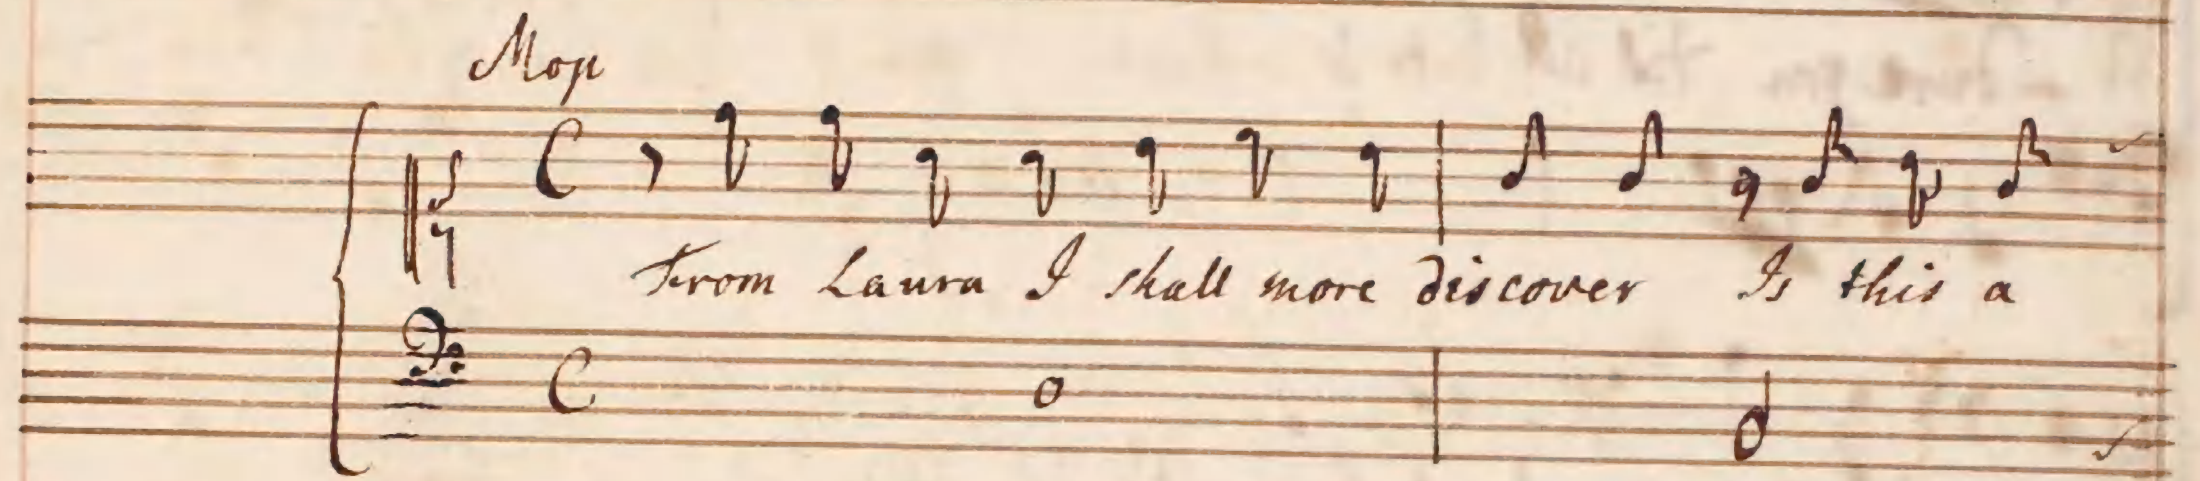 Mop
From Laura I shall more discover Is this a